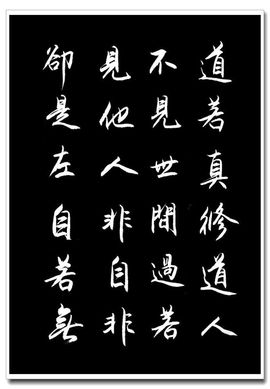 道若真修道人
不見世間過若
見他人非自非
卻是左自若無